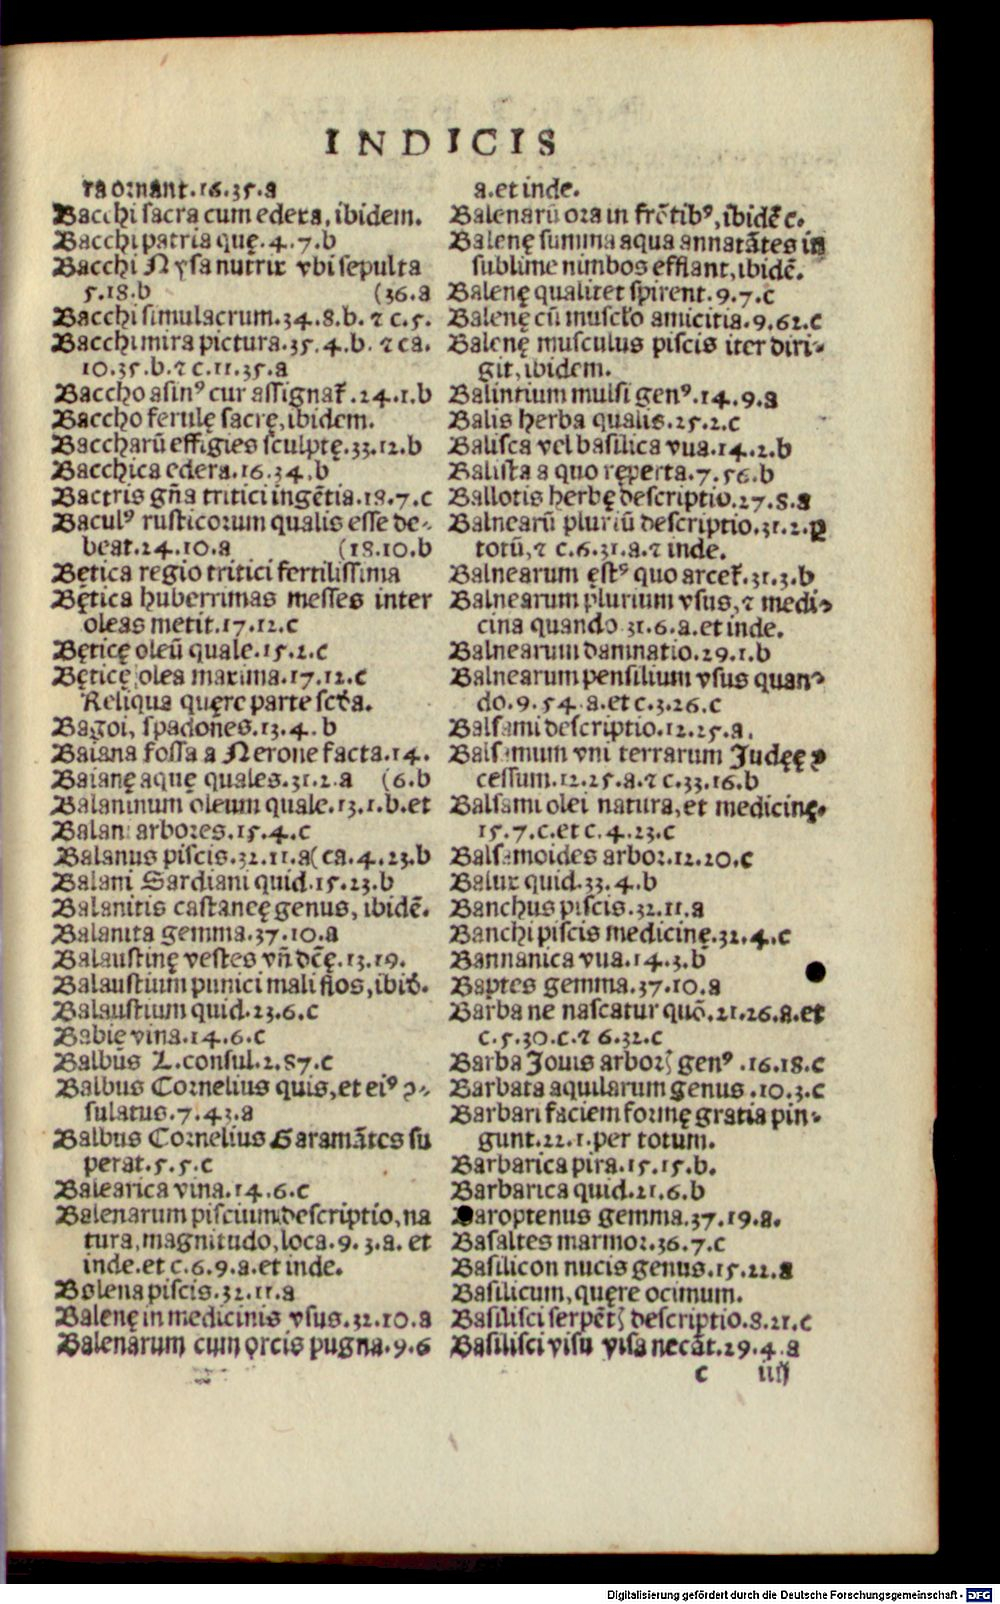 INDICIS
ra ornant.16.35.a
Bacchi sacra cum edera, ibidem.
Bacchi patria quę.4.7.b
Bacchi Nysa nutrix vbi sepulta
5.18.b (36.a
Bacchi simulacrum.34.8.b.⁊ c.5.
Bacchi mira pictura.35.4.b.⁊ ca.
10.35.b.⁊ c.11.35.a
Baccho asinꝰ cur assignat̃.24.1.b
Baccho ferulę sacrę, ibidem.
Baccharū effigies sculptę.33.12.b
Bacchica edera.16.34.b
Bactris gña tritici ingẽtia.18.7.c
Baculꝰ rusticorum qualis esse de-
beat.24.10.a (18.10.b
Bętica regio tritici fertilissima
Bętica huberrimas messes inter
oleas metit.17.12.c
Bęticę oleū quale.15.2.c
Bęticę olea maxima.17.12.c
Reliqua quęre parte sctã.
Bagoi, spadones.13.4.b
Baiana fossa a Nerone facta.14.
Baianę aquę quales.31.2.a (6.b
Balaninum oleum quale.13.1.b.et
Balani arbores.15.4.c
Balanus piscis.32.11.a (ca.4.23.b
Balani Sardiani quid.15.23.b
Balanitis castaneę genus, ibidẽ.
Balanita gemma.37.10.a
Balaustinę vestes vñ dcę̃.13.19.
Balaustium punici mali flos, ibid.
Balaustium quid.23.6.c
Babie vina.14.6.c
Balbus L.consul.2.87.c
Balbus Cornelius quis, et eiꝰ ꝯ-
sulatus.7.43.a
Balbus Cornelius Garamãtes su
perat.5.5.c
Balearica vina.14.6.c
Balenarum piscium descriptio, na
tura, magnitudo, loca.9.3.a. et
inde.et c.6.9.a.et inde.
Bolena piscis.32.11.a
Balenę in medicinis vsus.32.10.a
Balenarum cum orcis pugna.9.6
a.et inde.
Balenarū ora in frõtibꝰ, ibidẽ c.
Balenę summa aqua annatãtes in
sublime nimbos efflant, ibidẽ.
Balenę qualiter spirent.9.7.c
Balenę cū musclo amicitia.9.62.c
Balenę musculus piscis iter diri-
git, ibidem.
Balintium mulsi genꝰ.14.9.a
Balis herba qualis.25.2.c
Balisca vel basilica vua.14.2.b
Balista a quo reperta.7.56.b
Ballotis herbę descriptio.27.8.a
Balnearū pluriū descriptio.31.2.ꝑ
totū, ⁊ c.6.31.a.⁊ inde.
Balnearum ęstꝰ quo arcet̃.31.3.b
Balnearum plurium vsus, ⁊ medi-
cina quando 31.6.a.et inde.
Balnearum damnatio.29.1.b
Balnearum pensilium vsus quan-
do.9.54.a.et c.3.26.c
Balsami descriptio.12.25.a.
Balsamum vni terrarum Judęę ꝯ
cessum.12.25.a.⁊ c.33.16.b
Balsami olei natura, et medicinę.
15.7.c.et c.4.23.c
Balsamoides arbor.12.20.c
Balux quid.33.4.b
Banchus piscis.32.11.a
Banchi piscis medicinę.32.4.c
Bannanica vua.14.3.b
Baptes gemma.37.10.a
Barba ne nascatur quõ.21.26.a.et
c.5.30.c.⁊ 6.32.c
Barba Jouis arborꝝ genꝰ.16.18.c
Barbata aquilarum genus.10.3.c
Barbari faciem formę gratia pin-
gunt.22.1.per totum.
Barbarica pira.15.15.b.
Barbarica quid.21.6.b
Baroptenus gemma.37.19.a.
Basaltes marmor.36.7.c
Basilicon nucis genus.15.22.a
Basilicum, quęre ocimum.
Basilisci serpẽtꝭ descriptio.8.21.c
Basilisci visu visa necãt.29.4.a
c iiij
Digitalisierung gefördert durch die Deutsche Forschungsgemeinschaft - DFG